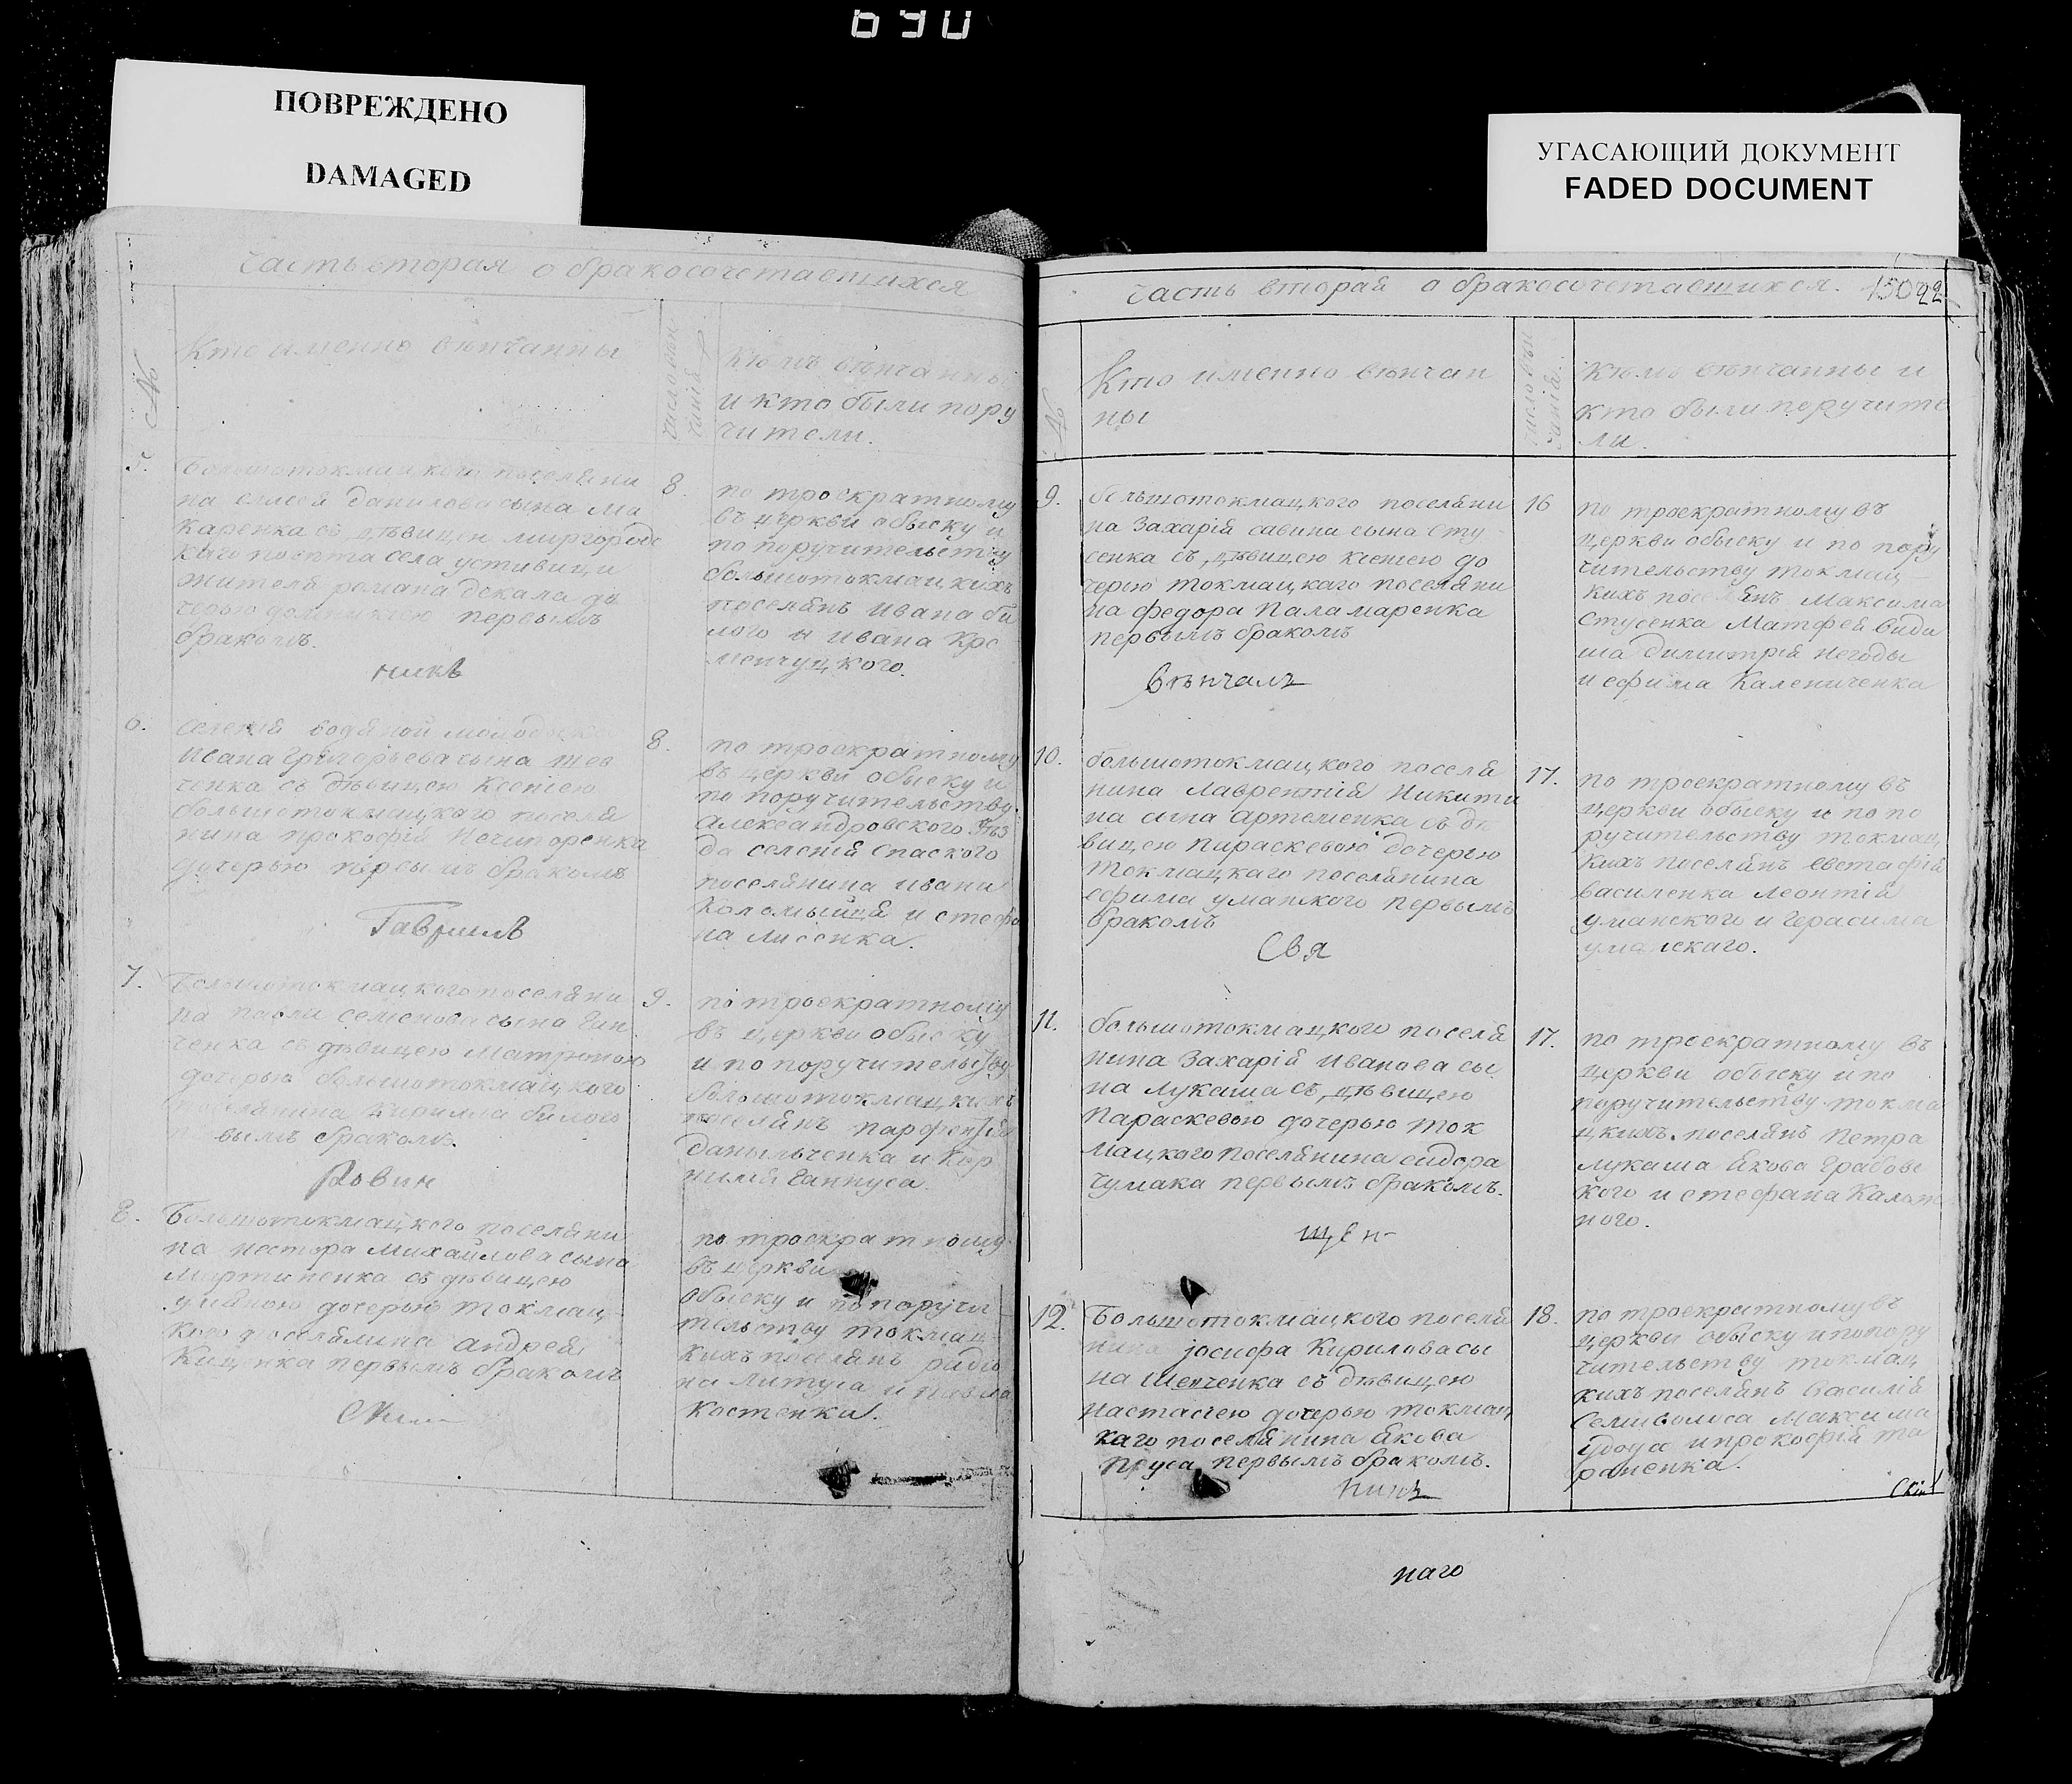 690
ПОВРЕЖДЕНО
DAMAGED
УГАСАЮЩИЙ ДОКУМЕНТ
FADED DOCUMENT
Часть вторая о бракосочетавшихся
№
Кто именно вѣнчанны
число вѣн
чанія
Кѣмъ вѣнчанны
и кто были пору
чители.
5.
Большотокмацкого поселяни
на Данилова сына Ма
каренка съ дѣвицею миргородс
кого повѣта села устивици
жителя романа декала до
черью первымъ
бракомъ.
8.
по троекратному
въ церкви обыску и
по поручительству
большотокмацкихъ
поселянъ Ивана би
лого и ивана Кре
менчуцкого.
6.
селенія водяной
Ивана Григорьева сына шев
ченка съ дѣвицею Ксеніею
большотокмацкого поселя
нина прокофія Нечипоренка
дочерью первымъ бракомъ
Гавриилъ
8.
по троекратному
въ церкви обыску и
по поручительству
Александровского уѣз
да селенія спаского
поселянина ивана
Коломыйця и стефа
на лисенка.
7.
Большотокмацкого поселяни
на павла семенова сына
ченка съ дѣвицею Матроною
дочерью большотокмацкого
поселянина Кирилла билого
первымъ бракомъ.
9.
по троекратному
въ церкви обыску
и по поручительству
большотокмацкихъ
поселянъ парфенія
данильченка и Кор
нилія ганнуса.
8.
Большотокмацкого поселяни
на нестора Михайлова сына
Мартиненка съ дѣвицею
улиною дочерью токмац
кого поселянина андрея
Кищенка первымъ бракомъ
по троекратному
въ церкви
обыску и по поручи
тельству токмац
кихъ поселянъ
на Литуса и павла
костенка.
Часть вторая о бракосочетавшихся. 150 22
№
Кто именно вѣнчан
ны
число вѣн
чанія.
Кѣмъ вѣнчанны и
кто были поручите
ли.
9.
большотокмацкого поселяни
на Захарія савина сына сту
сенка съ дѣвицею ксеніею до
черью токмацкаго поселяни
на федора паламаренка
первымъ бракомъ
Вѣнчалъ
16
по троекратному въ
церкви обыску и по пору
чительству токмац
кихъ поселянъ Максима
стусенка Матфея види
ша димитрія негоды
и ефима Калениченка
10.
большотокмацкого поселя
нина лаврентія Никити
на сина артеменка съ дѣ
вицею параскевою дочерью
токмацкаго поселянина
ефима уманского первымъ
бракомъ
Свя
17.
по троекратному въ
церкви обыску и по по
ручительству токмац
кихъ поселянъ евстафія
василенка леонтія
уманского и герасима
уманскаго.
11.
большотокмацкого поселя
нина Захарія иванова сы
на лукаша съ дѣвицею
параскевою дочерью ток
мацкого поселянина сидора
чумака первымъ бракомъ.
щен
17.
по троекратному въ
церкви обыску и по
поручительству токма
цкихъ поселянъ петра
лукаша якова грабовс
кого и стефана
ного.
12.
Большотокмацкого поселя
нина іосифа Кирилова сы
на Шевченка съ дѣвицею
настасіею дочерью токмац
каго поселянина якова
пруса первымъ бракомъ.
18.
по троекратному въ
церкви обыску и по пору
чительству токмац
кихъ поселянъ василія
семиволоса Максима
и прокофія та
раненка.
наго